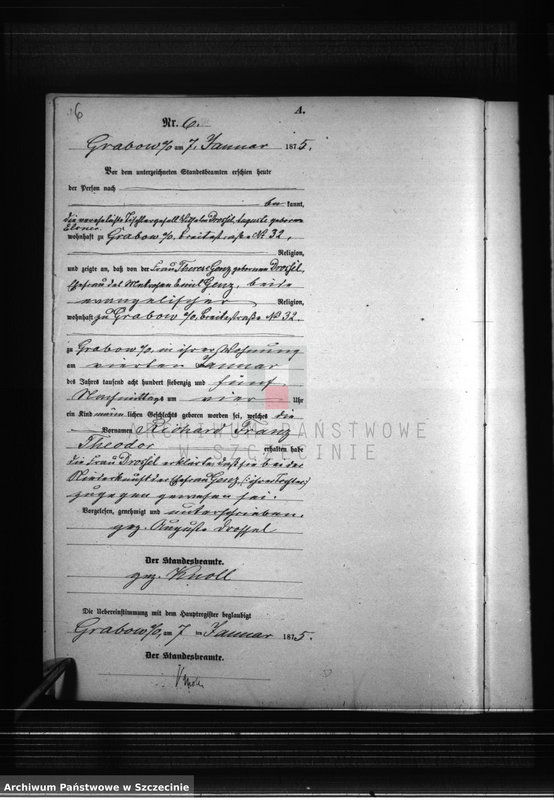 6
A.
Nr. 6.
Grabow a/O am 7. Januar 1875.
Vor dem unterzeichneten Standesbeamten erschien heute
der Person nach
be kannt,
die verehelichte Tischlergesell Wilhelm Drossel, Auguste geborene
wohnhaft zu Grabow a/O, Breitestraße № 32,
Religion,
und zeigte an, daß von der Frau Therese Genz geborenen Drossel,
Ehefrau des Matrosen Genz, beide
evangelischer Religion,
wohnhaft zu Grabow a/O, Breitestraße № 32.
zu Grabow a/O, in ihrer Wohnung
am vierten Januar
des Jahres tausend acht hundert siebenzig und fünf
Nachmittags um vier Uhr
ein Kind männlichen Geschlechts geboren worden sei, welches die
Vornamen Richard Franz
Theodor erhalten habe
die Frau Drossel erklärte, daß sie bei der
Niederkunft der Ehefrau Genz, (ihrer Tochter)
zugegen gewesen sei.
Vorgelesen, genehmigt und unterschrieben.
gez. Auguste Drossel
Der Standesbeamte.
gez. Knoll
Die Uebereinstimmung mit dem Hauptregister beglaubigt
Grabow a/O, am 7 ten Januar 1875.
Der Standesbeamte.
Knoll
ARCHIWUM PAŃSTWOWE
W SZCZECINIE
Archiwum Państwowe w Szczecinie